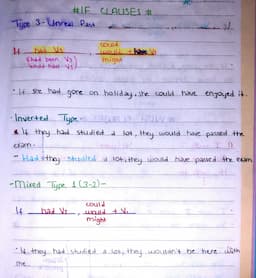 #IF CLAUSES #
Type 3 - Unreal Past
could
If had V3 would + have V3
(had been V3) might
• If she had gone on holiday, she could have enjoyed it.
• Inverted Type -
• If they had studied a lot, they would have passed the
exam.
- Had they studied a lot, they would have passed the exam
- Mixed Type 1 (3-2) -
could
If had V3 , would + V1
might
• If they had studied a lot, they wouldn't be here with
me.